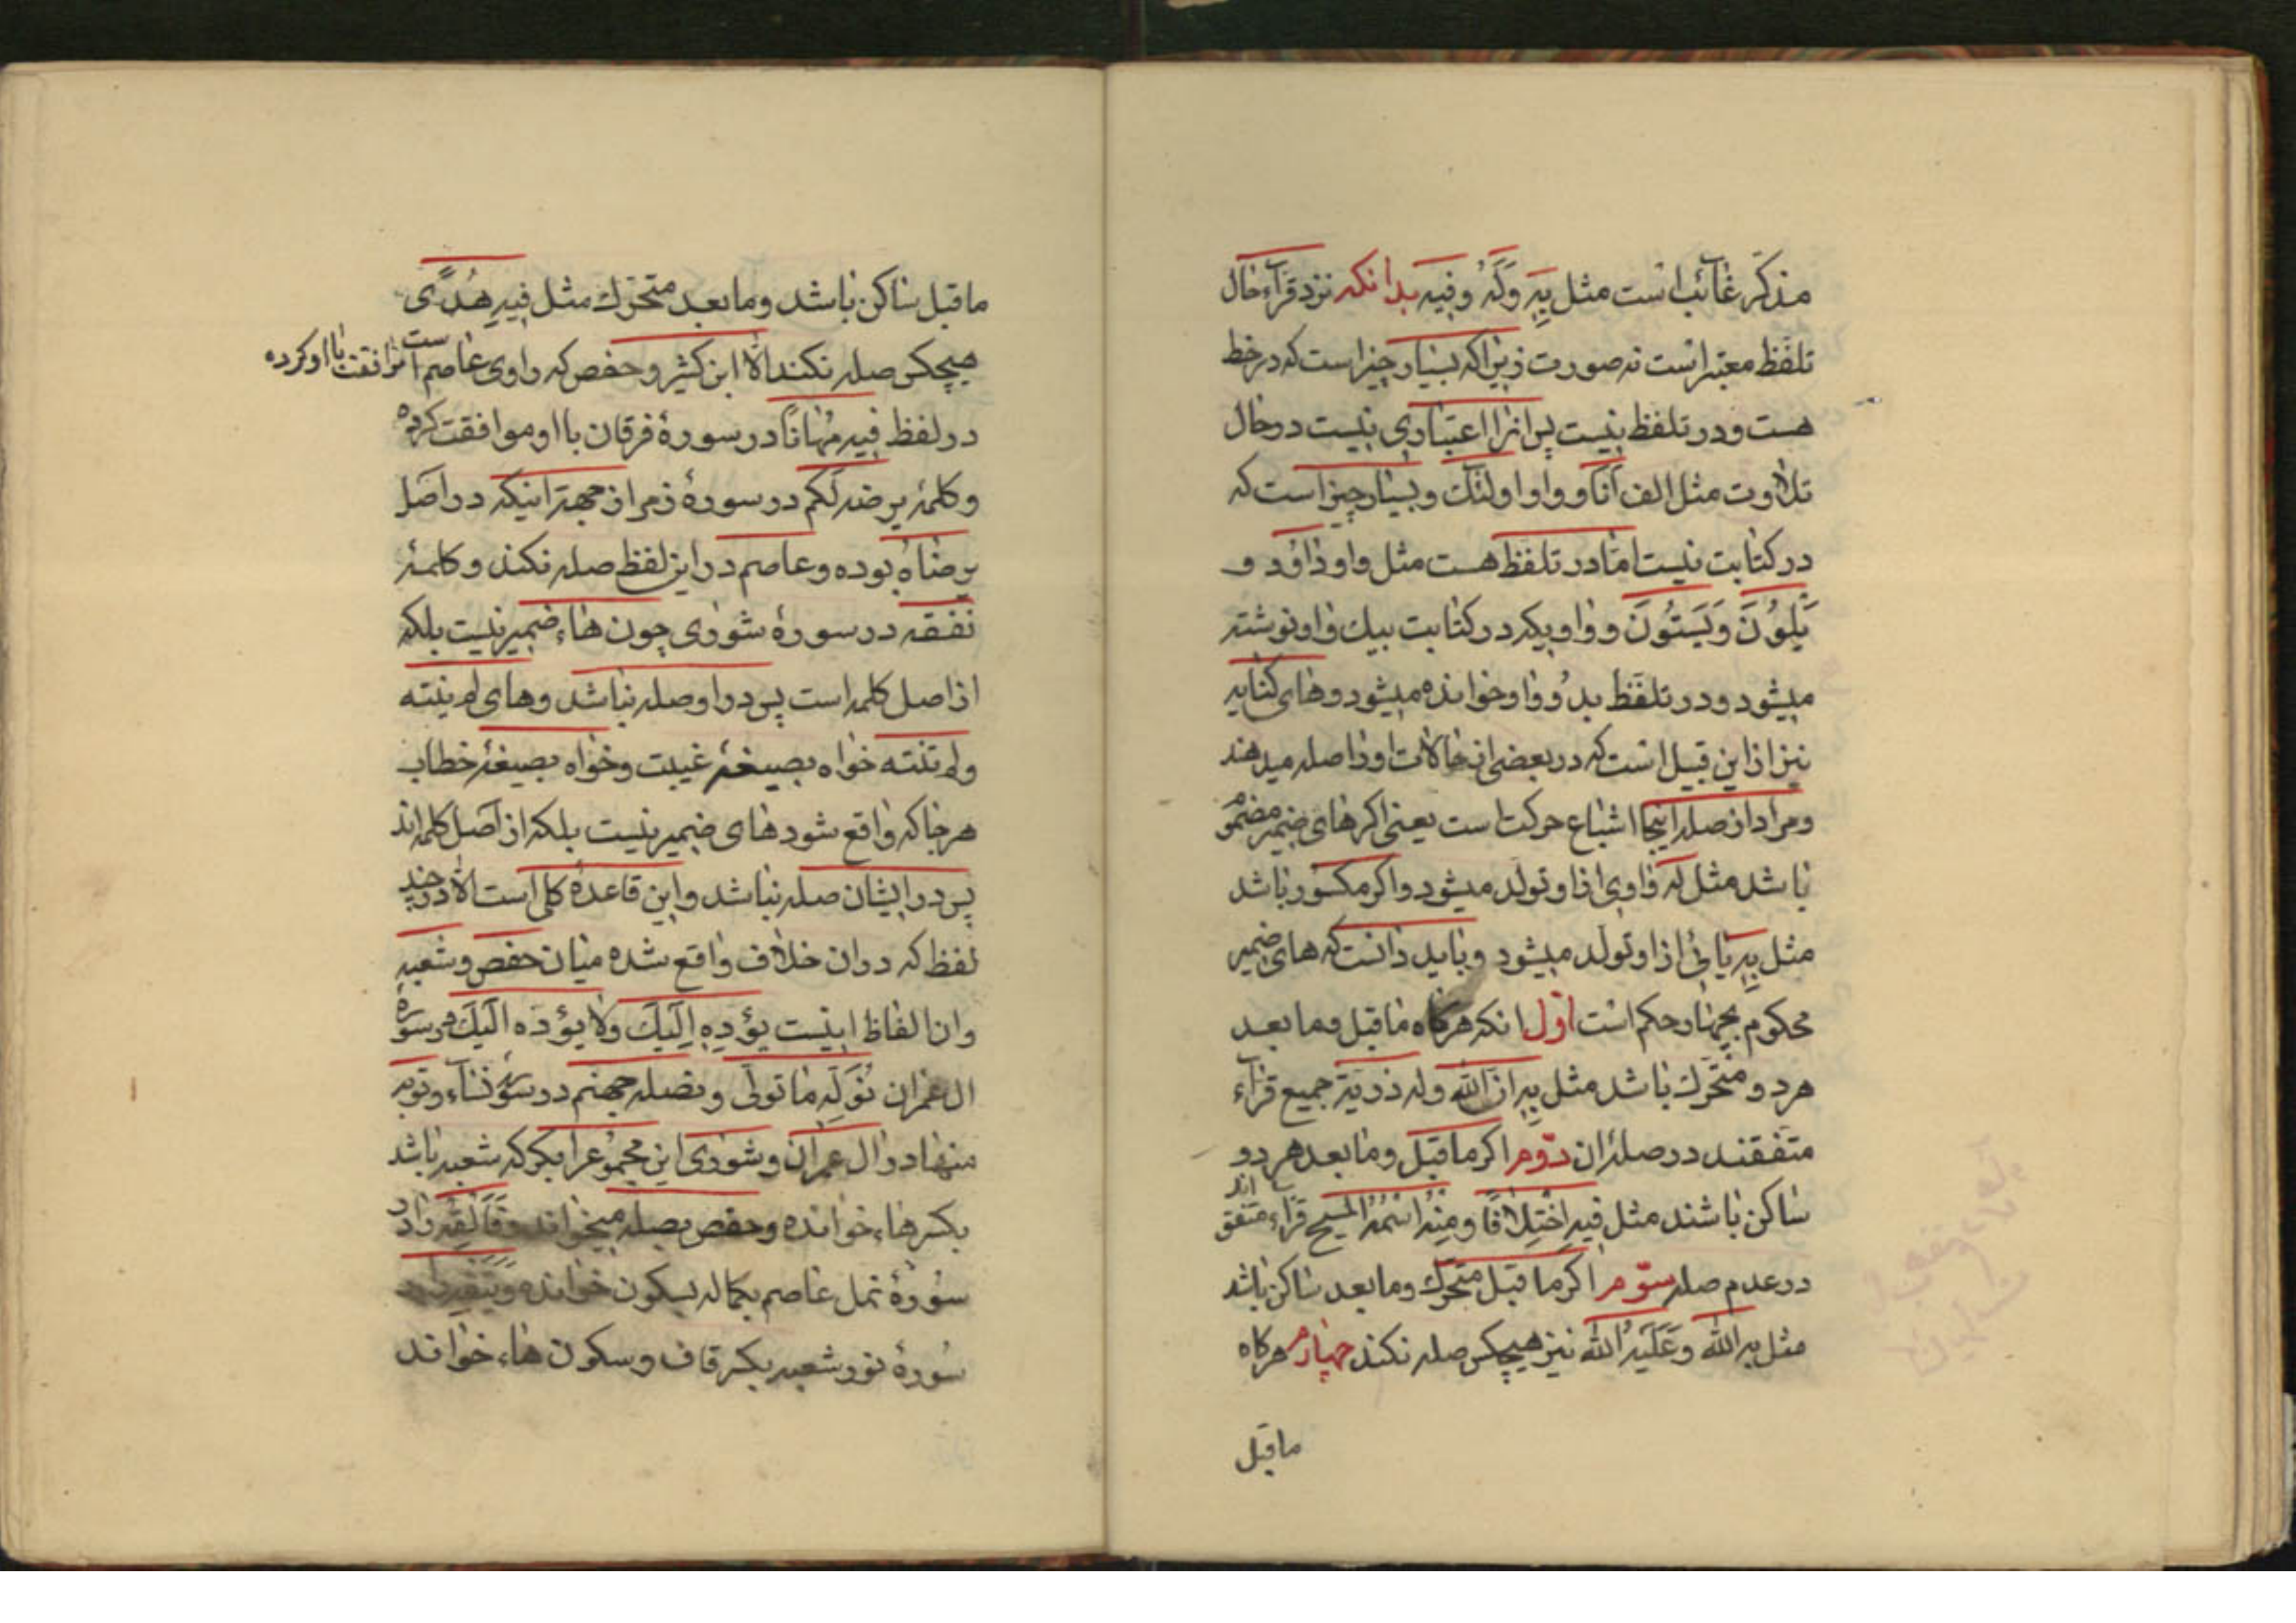 مذکّر غآئب است مثل بِهِ وَلَهُ وفیه بدانکه نزد قرّآء حال
تلفّظ معتبر است نه صورت زیرا که بسیار چیز است که در خط
هست ودر تلفظ نیست پس انرا اعتباری نیست در حال
تلاوت مثل الف أنا و واو اولئک وبسیار چیز است که
در کتابت نیست امّا در تلفظ هست مثل واو داوُد و
یَلوُنَ وَیَسْتَوُنَ و واویکه در کتابت بیک واو نوشته
میشود ودر تلفّظ بدُو واو خوانده میشود وهای کنایه
نیز از این قبیل است که در بعضی از حالات اورا صله میدهند
ومراد از صله اینجا اشباع حرکت است یعنی اکر های ضمیر مضموم
باشد مثل لَهُ واوی از او تولّد میشود واکر مکسور باشد
مثل بِهِ یائی از او تولّد میشود وباید دانست که های ضمیر
محکوم بچهار حکم است اوّل انکه هرکاه ماقبل وما بعد
هردو متحّرک باشد مثل بِهِ انّ الله وله ذریّة جمیع قرّاء
متفقند در صلهٔ ان دوّم اکر ماقبل وما بعد هر دو
ساکن باشند مثل فیهِ اخْتِلافًا ومِنْهُ اسْمُهُ الْمَسیح قرّاء متفق اند
در عدم صله سوّم اکر ما قبل متحّرک وما بعد ساکن باشد
مثل به الله وَعَلَیْهُ الله نیز هیچکس صله نکند چهارم هرکاه
ماقبل
ماقبل ساکن باشد وما بعد متحرّک مثل فیهِ هُدًی
هیچکس صله نکند الّا ابن کثیر وحفص که راوی عاصم است موافقت با او کرده
در لفظ فیهِ مُهانًا در سورهٔ فرقان با او موافقت کرده
وکلمهٔ یرضه لَکم در سورهٔ زمر از جهة اینکه در اصل
یرضاهُ بوده وعاصم در این لفظ صله نکند وکلمهٔ
نفقه در سورهٔ شوری چون هاء ضمیر نیست بلکه
از اصل کلمه است پس در او صله نباشد وهای لم ینته
ولم تنته خواه بصیغهٔ غیبت وخواه بصیغهٔ خطاب
هر جا که واقع شود های ضمیر نیست بلکه از اصل کلمه اند
پس در ایشان صله نباشد واین قاعدهٔ کلی است الّا در چند
لفظ که در ان خلاف واقع شده میان حفص وشعبه
وان الفاظ اینست یؤدِهِ اِلَیْکَ ولا یؤدّه الَیْکَ در سورهٔ
ال عمران نُوَلِّه ما تولّی ونصله جهنم در سورهٔ نساء ونوته
منها در ال عمران وشوری این مجموع را بکر که شعبه باشد
بکسر هاء خوانده وحفص بصله میخواند وفَاَلْقِهْ را در
سُورهٔ نمل عاصم بکماله بسکون خوانده وَیَتَّقِهِ در
سُورهٔ نور شعبه بکسر قاف وسکون هاء خواند